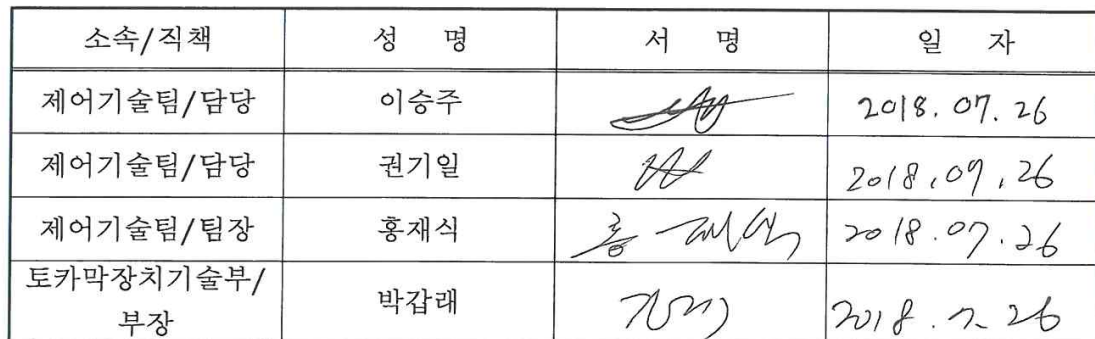 소속/직책 성 명 서 명 일 자
제어기술팀/담당 이승주 2018. 07. 26
제어기술팀/담당 권기일 2018. 07. 26
제어기술팀/팀장 홍재식 홍재식 2018. 07. 26
토카막장치기술부/
부장 박갑래 2018. 7. 26